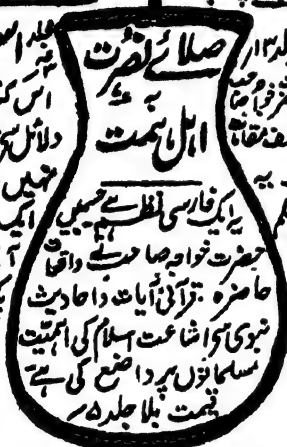 صلائے نصرت
بہ
اہل ہمت
یہ ایک فارسی نظم ہے جسمیں
حضرت خواجہ صاحب نے واقعات
حاضرہ۔ قرآنی آیات و احادیث
نبوی سے اشاعت اسلام کی اہمیت
مسلمانوں پر واضع کی ہے
قیمت بلا جلد ۵ ؍
اس
دلائل
نہیں